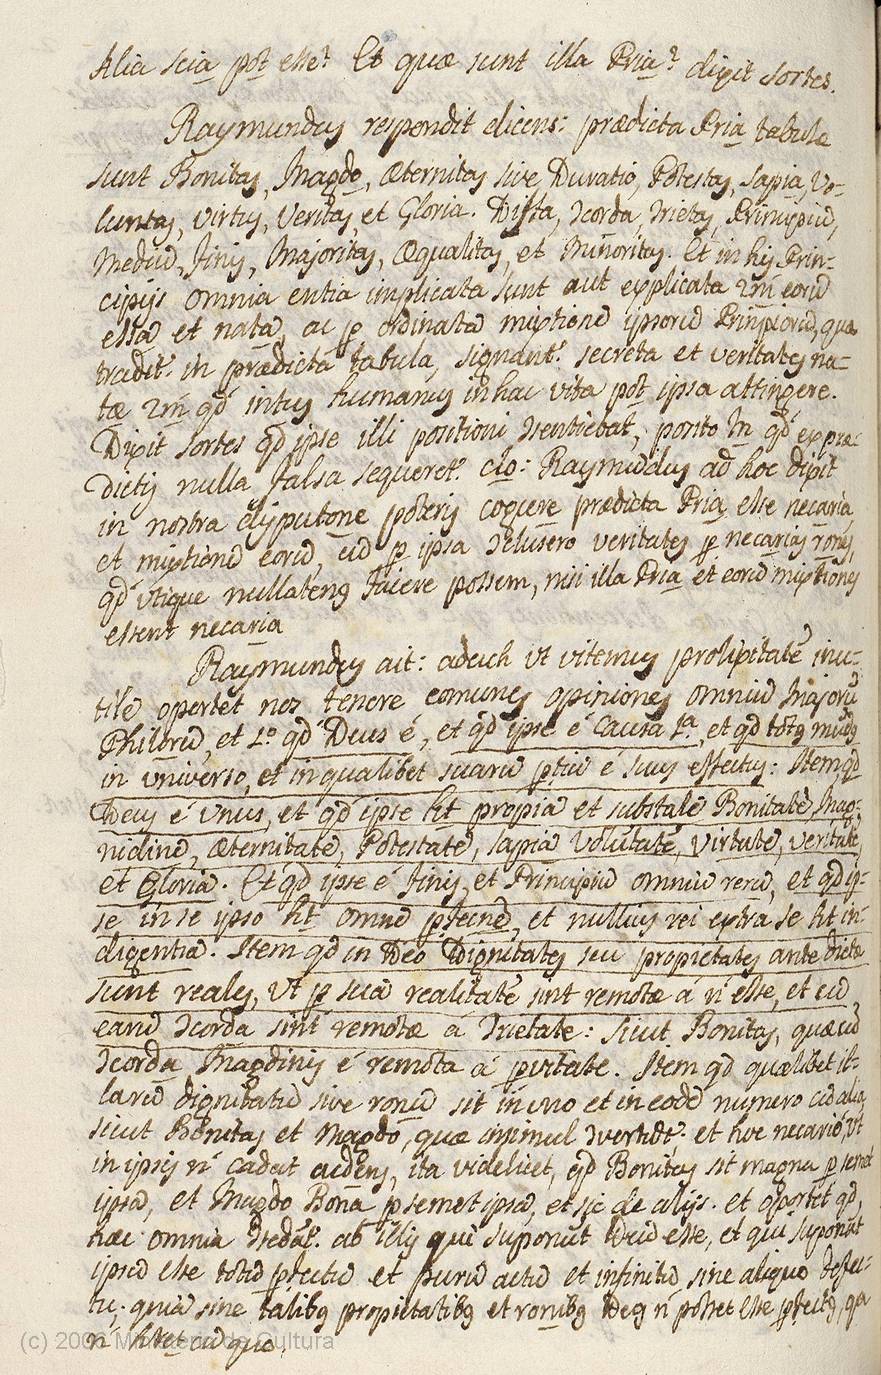 Alia scia pot esse? Et quæ sunt illa Pria? dixit sortes.
Raymundus respondit dicens: prædicta Pria tabulæ
sunt Bonitas, Magdo, æternitas sive Duratio, Potestas, sapia, Vo-
luntas, virtus, veritas, et Gloria. Diffa, Icorda, Irietas, Principiũ,
Mediũ, finis, Majoritas, Æqualitas, et Minoritas. Et in his Prin-
cipijs omnia entia implicata sunt aut explicata eorũ
essã et natã, ac p ordinatã mixtionẽ ipsorũ Prinpiorũ, quæ
tradit. in prædicta tabula, signant. secreta et veritates na-
tæ qd intus humanus in hac vita pot ipsa attingere.
Dixit sortes qd ipse illi positioni Isentiebat, posito tn qd ex præ-
dictis nulla falsa sequeret. clo: Raymũdus ad hoc dixit
in nostra disputone poteris cogcere prædicta Pria esse necaria
et mixtionẽ eorũ, cũ p ipsa Iclusero veritates p necarias rones,
qd utique nullateng facere possem, nisi illa Pria et eorũ mixtiones
essent necaria
Raymundus ait: ad ut vitemus prolixitatẽ inu-
tilẽ oportet nos tenere comunes opiniones omniũ Majorũ
Philorũ, et 1.º qd Deus ẽ, et qd ipse ẽ Causa 1.ª, et qd totg mũdg
in universo, et in qualibet suarũ ptiũ ẽ suus effectus: Item qd
Deus ẽ unus, et qd ipse ht propiã et substalẽ Bonitatẽ, Mag-
nidinẽ, æternitatẽ, Potestatẽ, sapiã Volũtatẽ, virtutẽ, veritatẽ,
et Gloriã. Et qd ipse ẽ finis, et Principiũ omniũ rerũ, et qd ip-
se in se ipso ht omnẽ pfecnẽ, et nullius rei extra se ht in-
digentiã. Item qd in Deo Dignitates seu propietates ante dictæ
sunt reales, ut p suã realitatẽ sint remotæ á ñ esse, et cũ
earũ Icorda sint remotæ á Irietate: sicut Bonitas, quæ cũ
Icorda Magdinis ẽ remota á pvitate. Item qd quælibet il-
larũ dignitatũ sive ronũ sit in uno et in eodẽ numero cũ alia
sicut Bonitas et Magdo, quæ insimul Ivertũt. et hoc necariò, ut
in ipsis ñ cadat accidens, ita videlicet, qd Bonitas sit magna p semet
ipsã, et Magdo Bona p semet ipsã, et sic de alijs. et oportet qd
hæc omnia Icedãt. ab illis qui suponũt Deũ esse, et qui suponũt
ipsũ esse totũ pfectũ et purũ actũ et infinitũ sine aliquo defec-
tu: quia sine talibg propietatibg et ronibg Deg ñ posset esse pfectg, qa
ñ hret cũ quo.
(c) 2006 Ministerio de Cultura